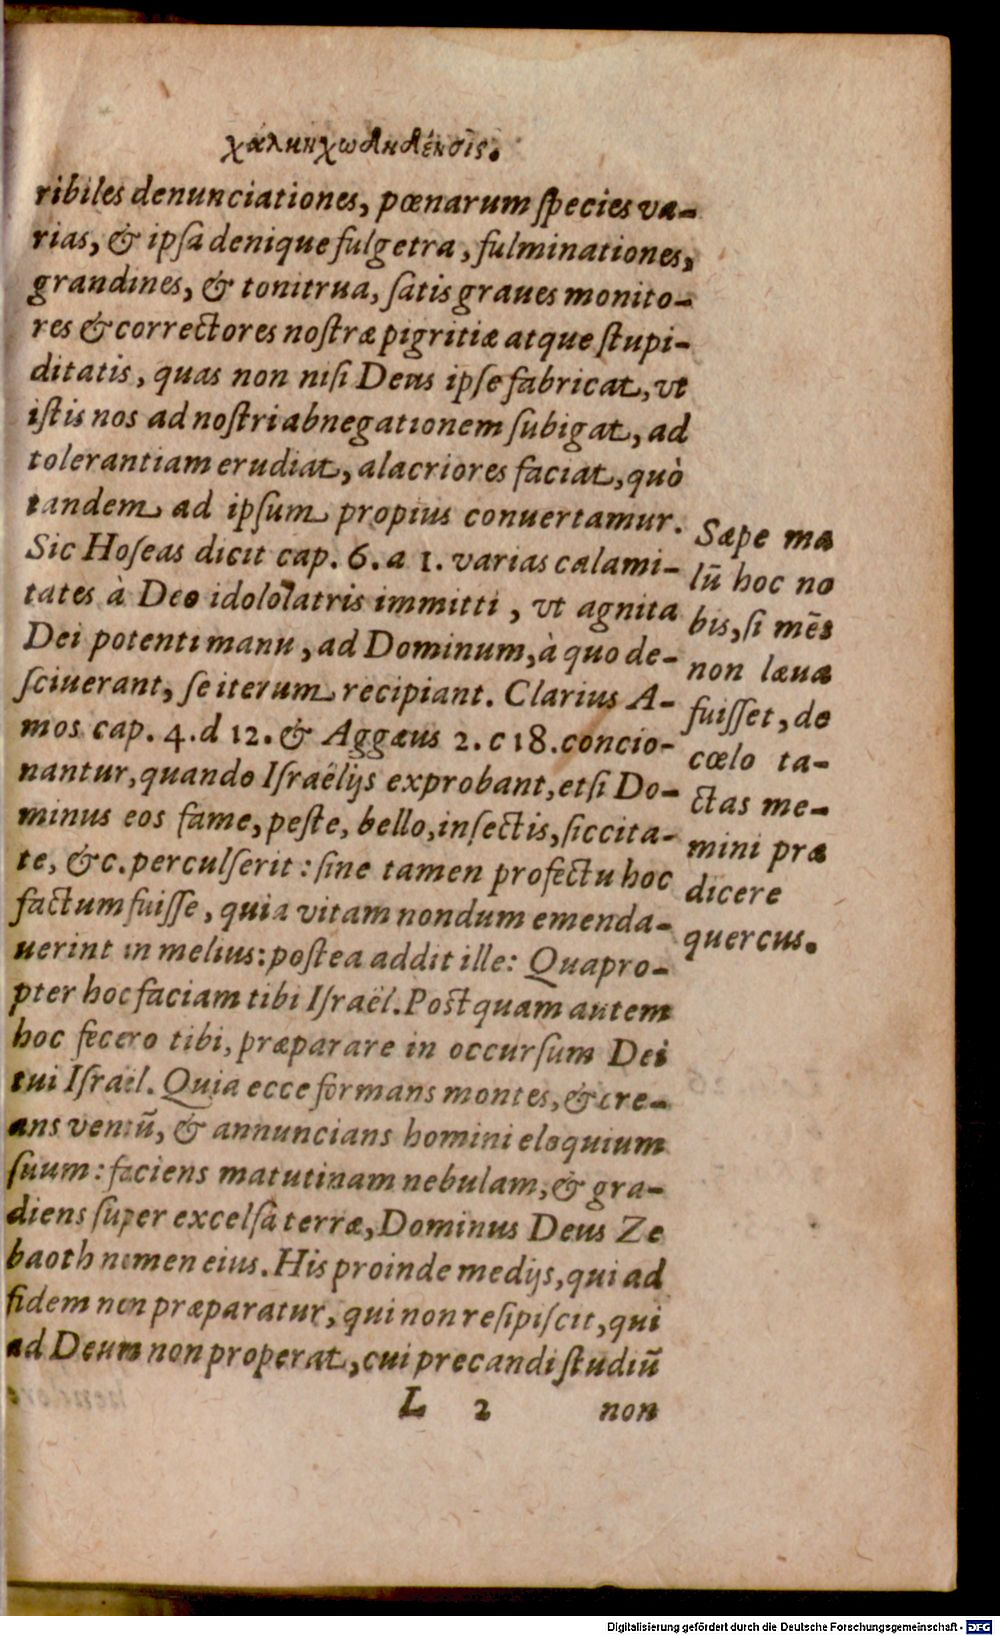 ribiles denunciationes, pœnarum species va-
rias, & ipsa denique fulgetra, fulminationes,
grandines, & tonitrua, satis graues monito-
res & correctores nostræ pigritiæ atque stupi-
ditatis, quas non nisi Deus ipse fabricat, vt
istis nos ad nostri abnegationem subigat, ad
tolerantiam erudiat, alacriores faciat, quò
tandem ad ipsum propius conuertamur.
Sic Hoseas dicit cap. 6. a 1. varias calami-
tates à Deo idololatris immitti, vt agnita
Dei potenti manu, ad Dominum, à quo de-
sciuerant, se iterum recipiant. Clarius A-
mos cap. 4. d 12. & Aggæus 2. c 18. concio-
nantur, quando Israëlijs exprobant, etsi Do-
minus eos fame, peste, bello, insectis, siccita-
te, &c. perculserit: sine tamen profectu hoc
factum fuisse, quia vitam nondum emenda-
uerint in melius: postea addit ille: Quapro-
pter hoc faciam tibi Israël. Postquam autem
hoc fecero tibi, præparare in occursum Dei
tui Israël. Quia ecce formans montes, & cre-
ans ventū, & annuncians homini eloquium
suum: faciens matutinam nebulam, & gra-
diens super excelsa terræ, Dominus Deus Ze
baoth nomen eius. His proinde medijs, qui ad
fidem non præparatur, qui non resipiscit, qui
ad Deum non properat, cui precandi studiū
L 2 non
Sæpe ma
lū hoc no
bis, si mēs
non læua
fuisset, de
cœlo ta-
ctas me-
mini præ
dicere
quercus.
Digitalisierung gefördert durch die Deutsche Forschungsgemeinschaft - DFG